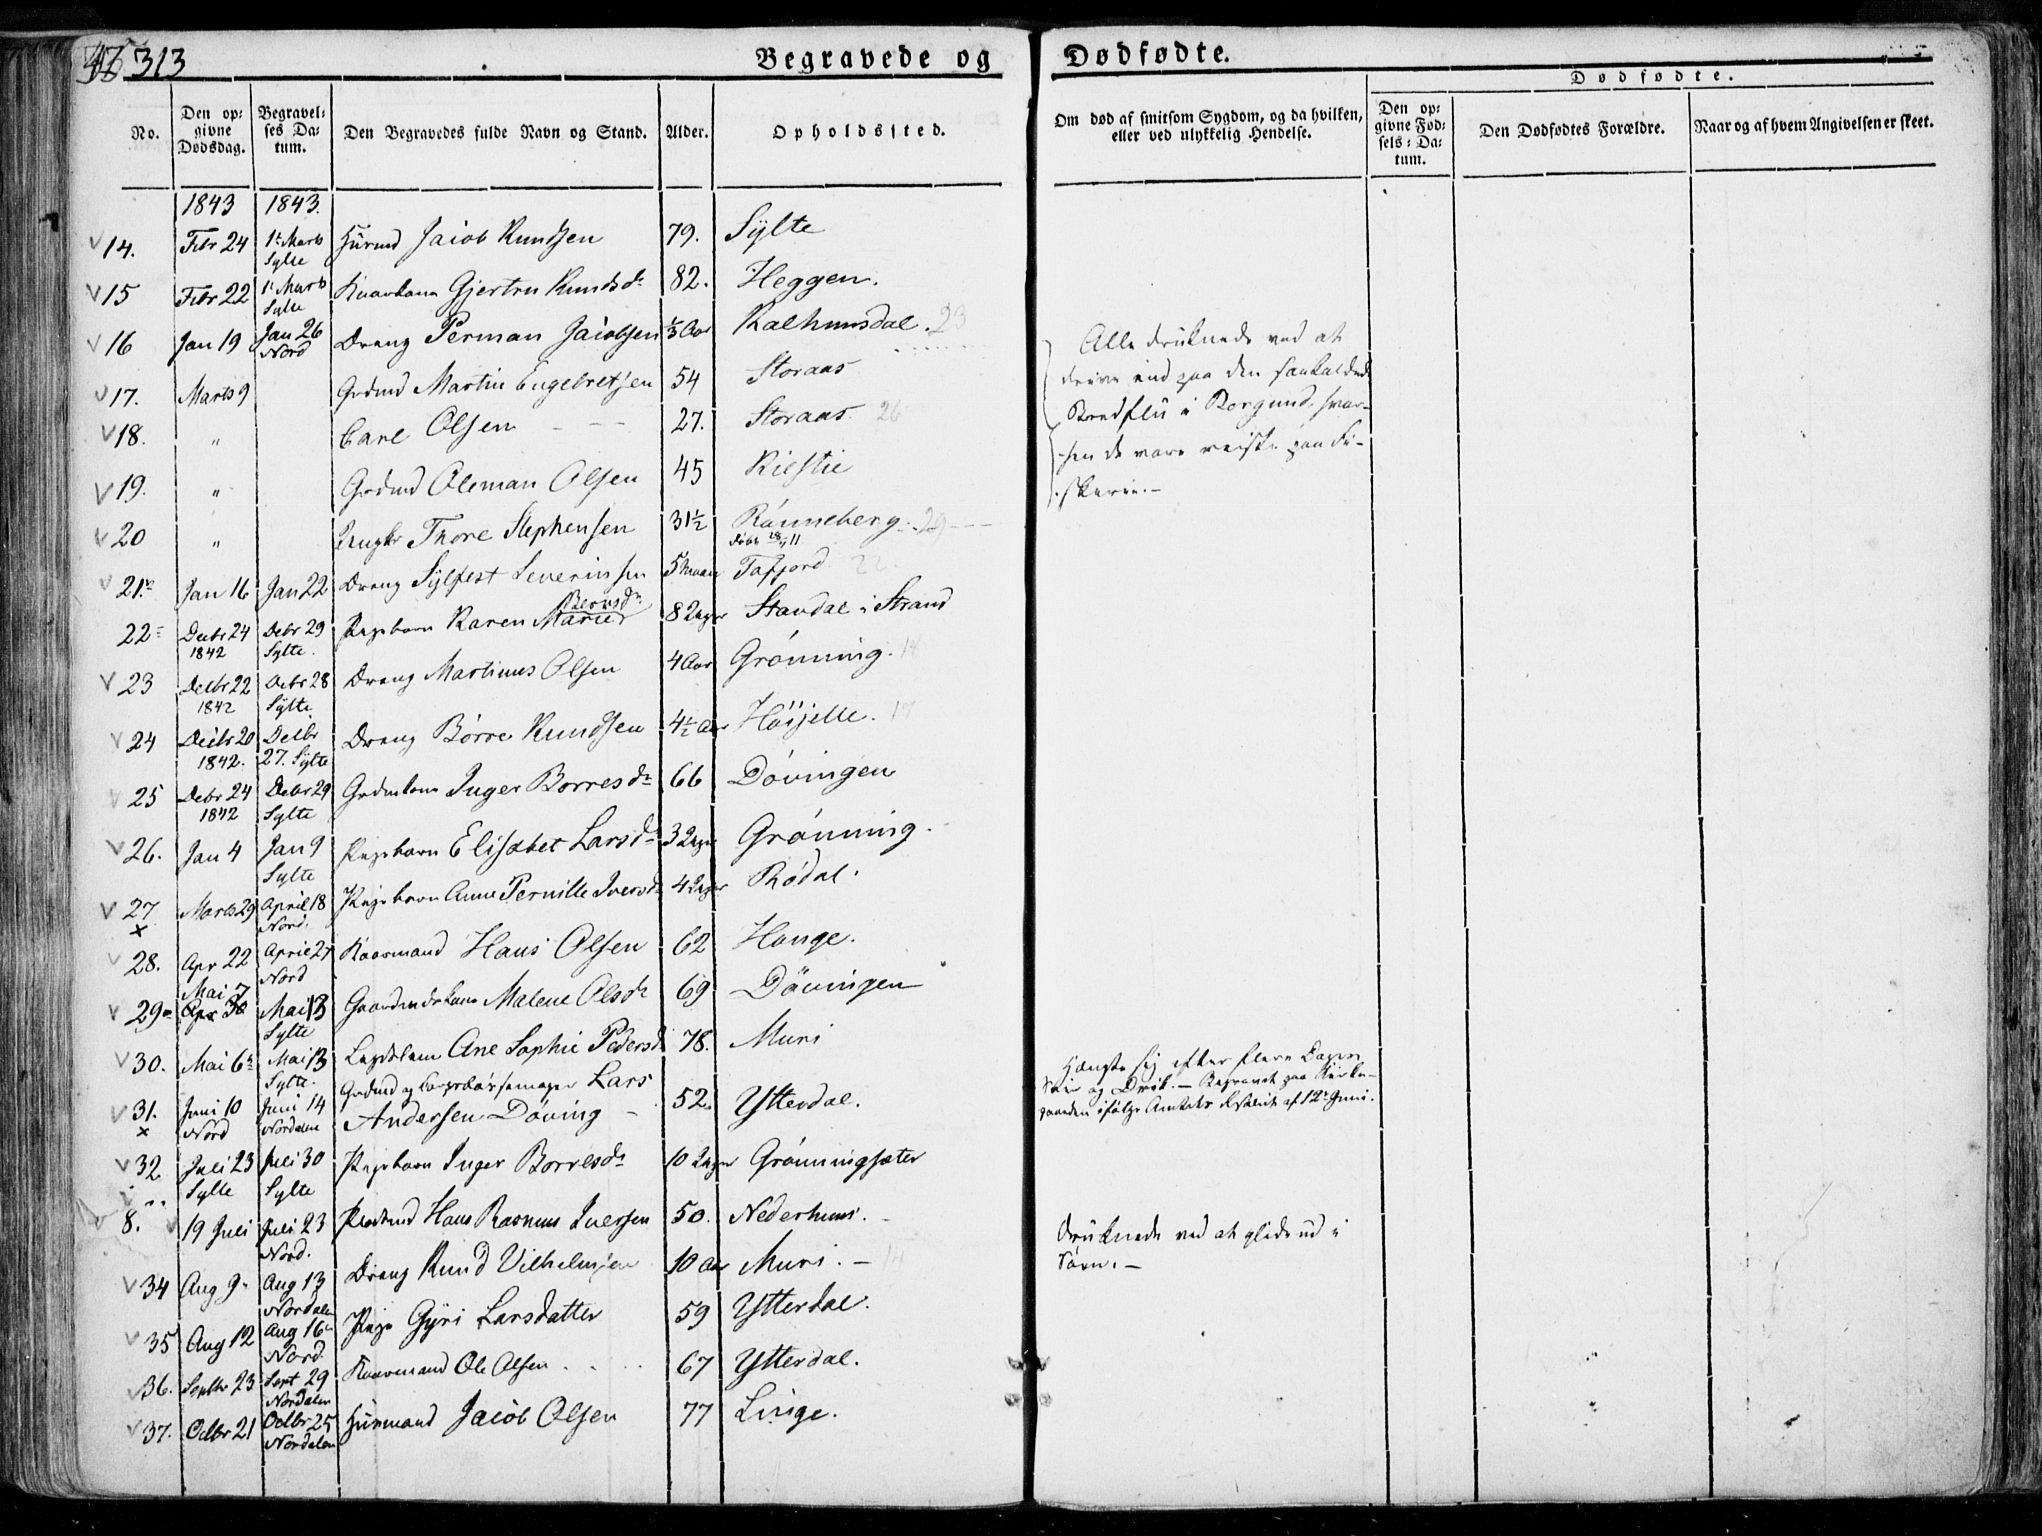 313
Begravede og Dødfødte.
Dødfødte.
No.
Den op-
givne
Dødsdag.
Begravel-
ses Da-
tum.
Den Begravedes fulde Navn og Stand.
Alder.
Opholdssted.
Om død af smitsom Sygdom, og da hvilken,
eller ved ulykkelig Hendelse.
Den op-
givne Fød-
sels-Da-
tum.
Den Dødfødtes Forældre.
Naar og af hvem Angivelsen er skeet.
1843 1843.
14. Febr 24 1t Marts Sylte Huusmd Jacob Knudsen 79. Sylte
15 Febr 22 1t Marts Sylte Kaarkone Gjertru Knudsdr 82. Heggen.
16 Jan 19 Jan 26 Nord Dreng Perman Jacobsen 1/3 Aar Kalhuusdal. 23
17. Marts 9 Grdmd Martin Engebretsen 54 Storaas
18. " Carl Olsen 27. Storaas 26
19. " Grdmd Oleman Olsen 45 Rilstie
20 " Ungkr Thore Stephensen 31½ Rønneberg. 29
Alle druknede ved at
drive ind paa den saakaldede
Bredflu i Borgund, hvor-
hen de vare reiste paa Fi-
skerie.-
21. Jan 16 Jan 22 Dreng Sylfest Severinsen 5 Maan Tafjord 22
22 Decbr 24 1842 Decbr 29 Sylte. Pigebarn Karen Marie 8 Dager Standal i Strand
23 Decbr 22 1842 Decbr 28 Sylte Dreng Martinus Olsen 4 Aar Grønning. 18
24 Decbr 20 1842. Decbr 27. Sylte Dreng Børre Knudsen 4½ Aar Høyjelle. 17
25 Decbr 24 1842 Decbr 29 Sylte Grdmkone Inger Borresdr 66 Døvingen
26. Jan 4 Jan 9 Sylte Pigebarn Elisabet Larsdr 3 Dager Grønning.
27 x Marts 29 April 18 Nord. Pigebarn Anne Pernille Iversdr 4 Dager Rødal.
28. Apr 22 April 27 Nord Kaarmand Hans Olsen 62 Hauge.
29 Mai 7 Apr 30 Mai 13 Sylte Gaardmdskone Malene Olsdr 69 Døvingen
30. Mai 6 Mai 13 Sylte. Lægdslem Ane Sophie Pedersdr 78. Muri
31. x Juni 10 Nord Juni 14 Nordalen Grdmd og Lars
Andersen Døving 52. Ytterdal.
Hængte sig efter flere Dages
og Drik. - Begravet paa Kirke-
gaarden ifølge Amtets Resolut af 12te Juni.
32 Juli 23 Sylte Juli 30 Sylte Pigebarn Inger Borresdr 10 Dager Grønningsæter
8. 19 Juli Juli 23 Nord. Hans Rasmus Iversen 50. Nederhuus.
Druknede ved at glide ud i
34 Aug 9 Aug 13 Nordalen Dreng Knud Vilhelmsen 10 Aar Muri. - 14
35 Aug 12 Aug 16 Nord Pige Gyri Larsdatter 59 Ytterdal.
36. Septbr 23 Sept 29 Nordalen Kaarmand Ole Olsen 67 Ytterdal.
37. Octbr 21 Octbr 25 Nordalen Huusmand Jacob Olsen 77 Linge.